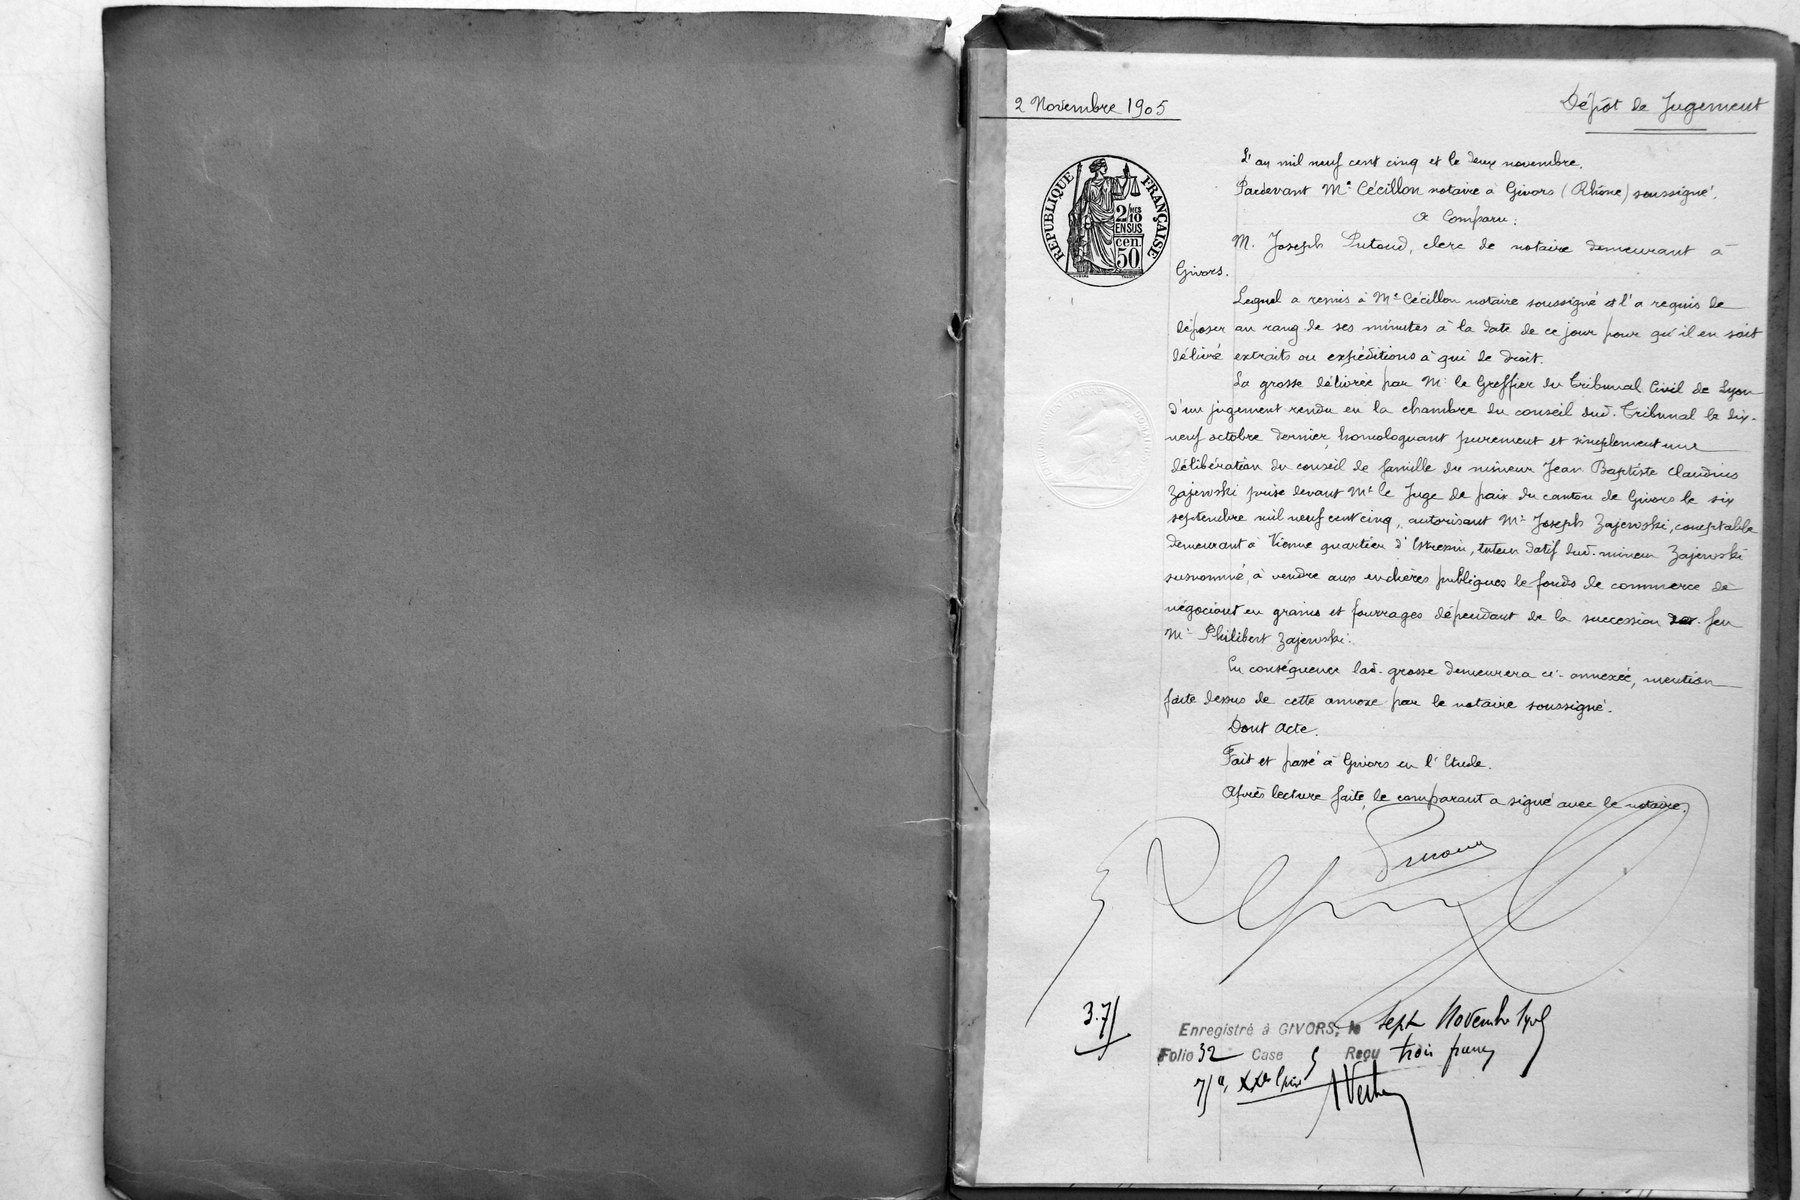 2 Novembre 1905
Dépôt de Jugement
REPUBLIQUE FRANÇAISE
2/10MES
EN SUS
cen.
50
L'an mil neuf cent cinq et le deux novembre.
Pardevant Me Cécillon notaire à Givors (Rhône) soussigné.
a Comparu:
M. Joseph Putoud, clerc de notaire demeurant à
Givors.
Lequel a remis à Me Cécillon notaire soussigné et l'a requis de
déposer au rang de ses minutes à la date de ce jour pour qu'il en soit
délivré extraits ou expéditions à qui de droit.
La grosse délivrée par Mr le Greffier du Tribunal Civil de Lyon
d'un jugement rendu en la chambre du conseil dud. Tribunal le dix-
neuf octobre dernier, homologuant purement et simplement une
délibération du conseil de famille du mineur Jean Baptiste Claudius
Zajewski prise devant Mr le Juge de paix du canton de Givors le six
septembre mil neuf cent cinq, autorisant Mr Joseph Zajewski, comptable
demeurant à Vienne quartier d'Estressin, tuteur datif dud. mineur Zajewski
susnommé, à vendre aux enchères publiques le fonds de commerce de
négociant en grains et fourrages dépendant de la succession de feu
Mr Philibert Zajewski.
En conséquence lad. grosse demeurera ci-annexée, mention
faite dessus de cette annexe par le notaire soussigné.
Dont acte.
Fait et passé à Givors en l'Etude.
Après lecture faite, le comparant a signé avec le notaire.
3.75
Enregistré à GIVORS, le sept Novembre 1905
Folio 32 Case 5 Reçu trois francs
75c,